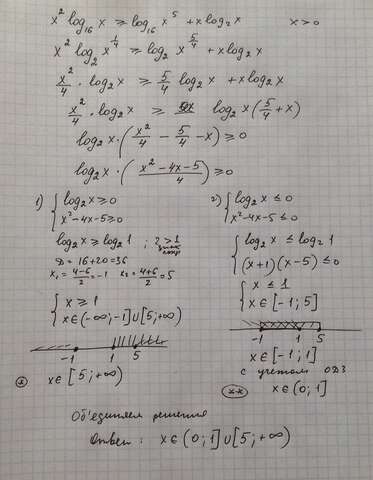 x² log₁₆ x ≥ log₁₆ x⁵ + x log₂ x        x > 0
x² log₂ x^(1/4) ≥ log₂ x^(5/4) + x log₂ x
x²/4 · log₂ x ≥ 5/4 log₂ x + x log₂ x
x²/4 · log₂ x ≥ log₂ x (5/4 + x)
log₂ x · (x²/4 − 5/4 − x) ≥ 0
log₂ x · ((x² − 4x − 5)/4) ≥ 0
1) { log₂ x ≥ 0
x² − 4x − 5 ≥ 0
log₂ x ≥ log₂ 1 ; 2 > 1
D = 16 + 20 = 36
x₁ = (4−6)/2 = −1   x₂ = (4+6)/2 = 5
{ x ≥ 1
x ∈ (−∞; −1] ∪ [5; +∞)
−1   1   5
(*) x ∈ [5; +∞)
2) { log₂ x ≤ 0
x² − 4x − 5 ≤ 0
{ log₂ x ≤ log₂ 1
(x+1)(x−5) ≤ 0
{ x ≤ 1
x ∈ [−1; 5]
−1   1   5
x ∈ [−1; 1]
с учетом ОДЗ
(**) x ∈ (0; 1]
Об'единяем решения
Ответ : x ∈ (0; 1] ∪ [5; +∞)